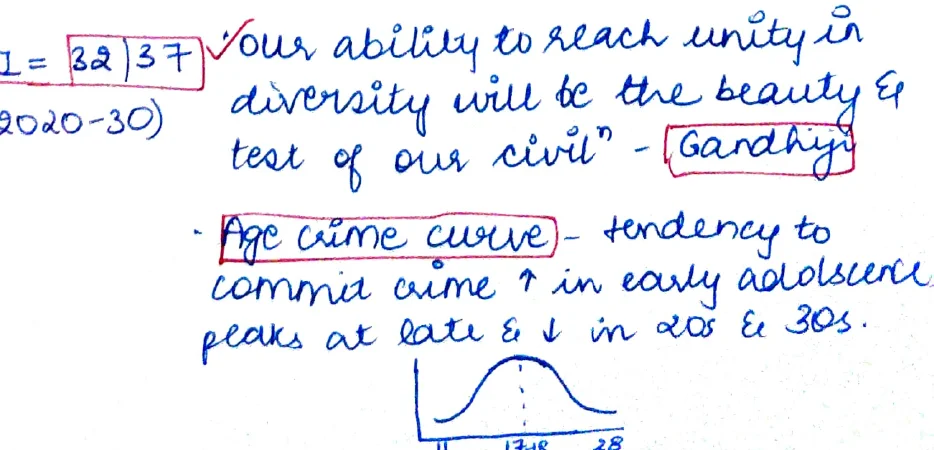 I = 32 | 37
2020-30)
"our ability to reach unity in
diversity will be the beauty &
test of our civilⁿ" - Gandhiji
· Age crime curve - tendency to
commit crime ↑ in early adolscence
peaks at late & ↓ in 20s & 30s.
11 17-18 28